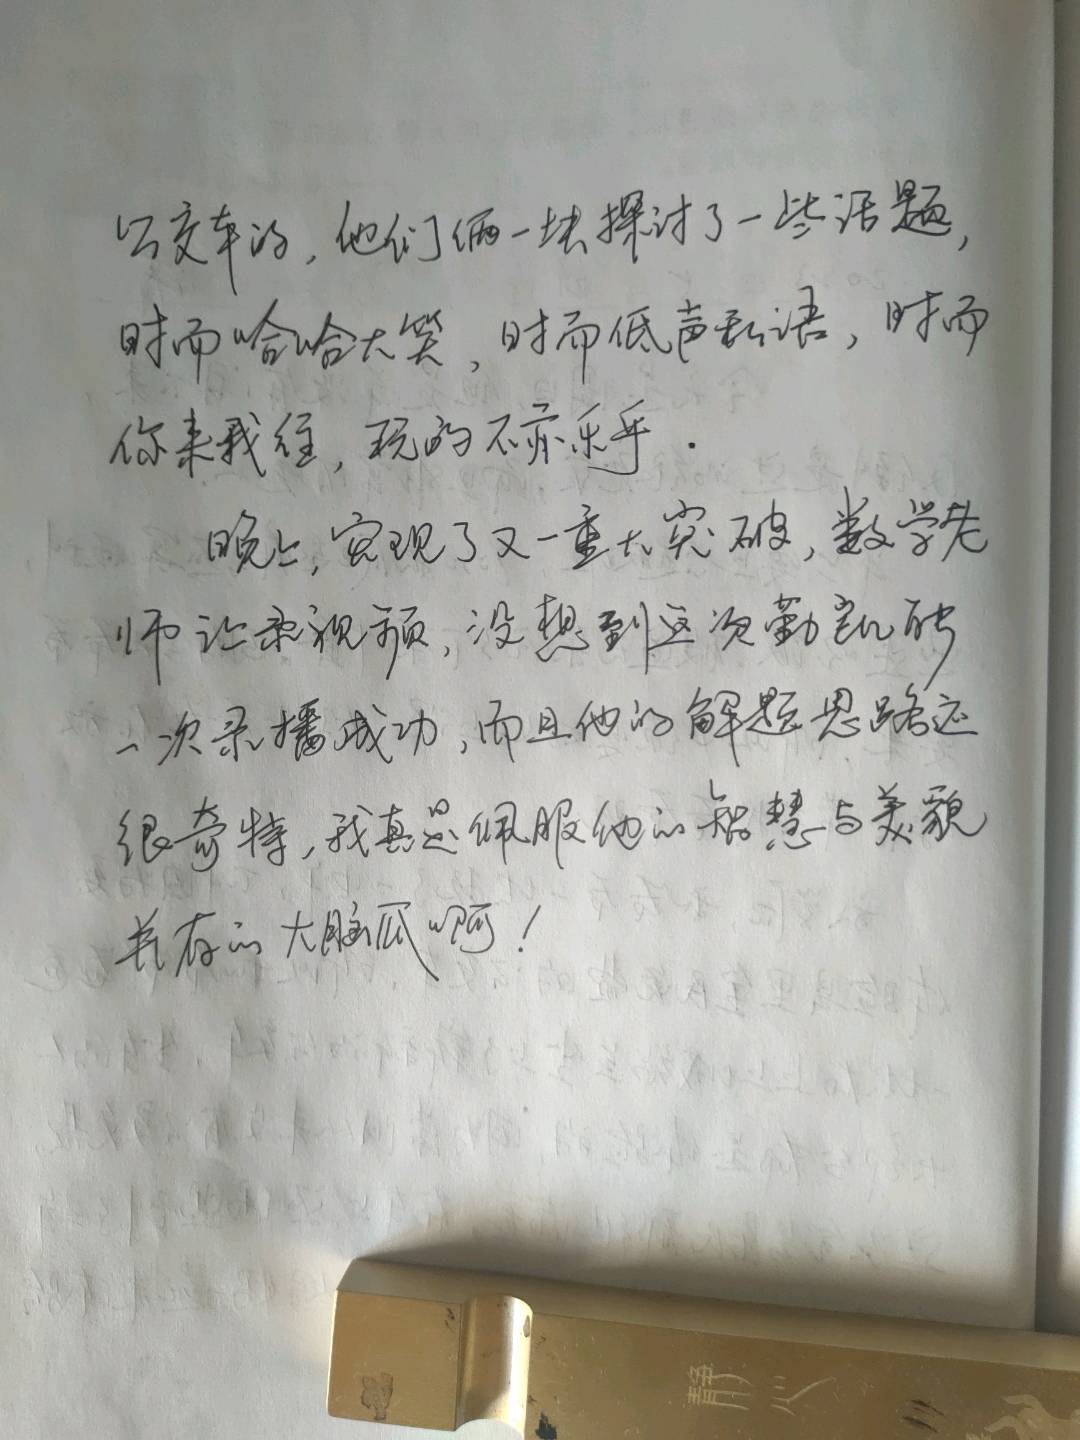 公交车的，他们俩一块探讨了一些话题，
时而哈哈大笑，时而低声私语，时而
你来我往，玩的不亦乐乎．
晚上，实现了又一重大突破，数学老
师让录视频，没想到这次勤凯能
一次录播成功，而且他的解题思路还
很奇特，我真是佩服他的智慧与美貌
并存的大脑瓜啊！
静心